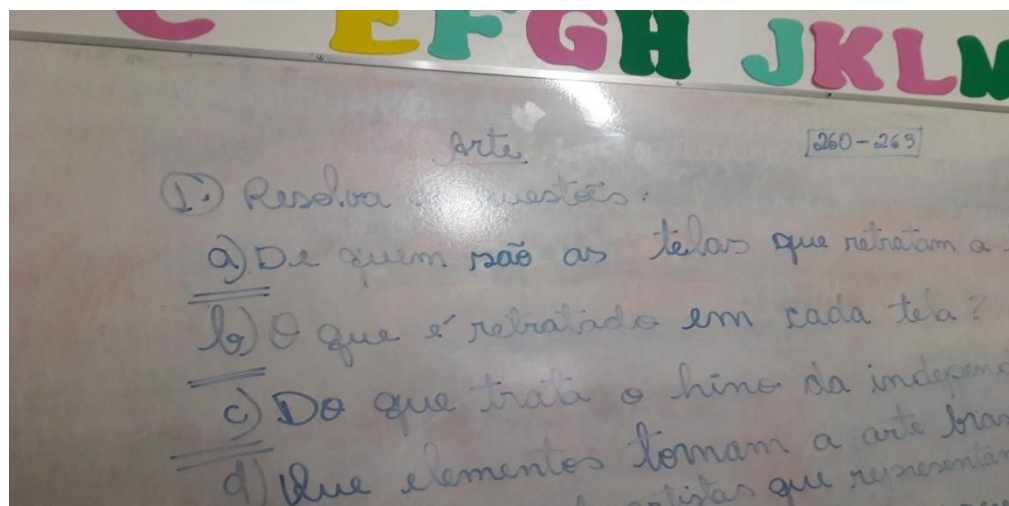 C EFGH JKLN
Arte 260-263
1.) Resolva questões:
a) De quem são as telas que retratam a
b) O que é retratado em cada tela?
c) Do que trata o hino da independ
d) Que elementos tornam a arte bras
artistas que representam